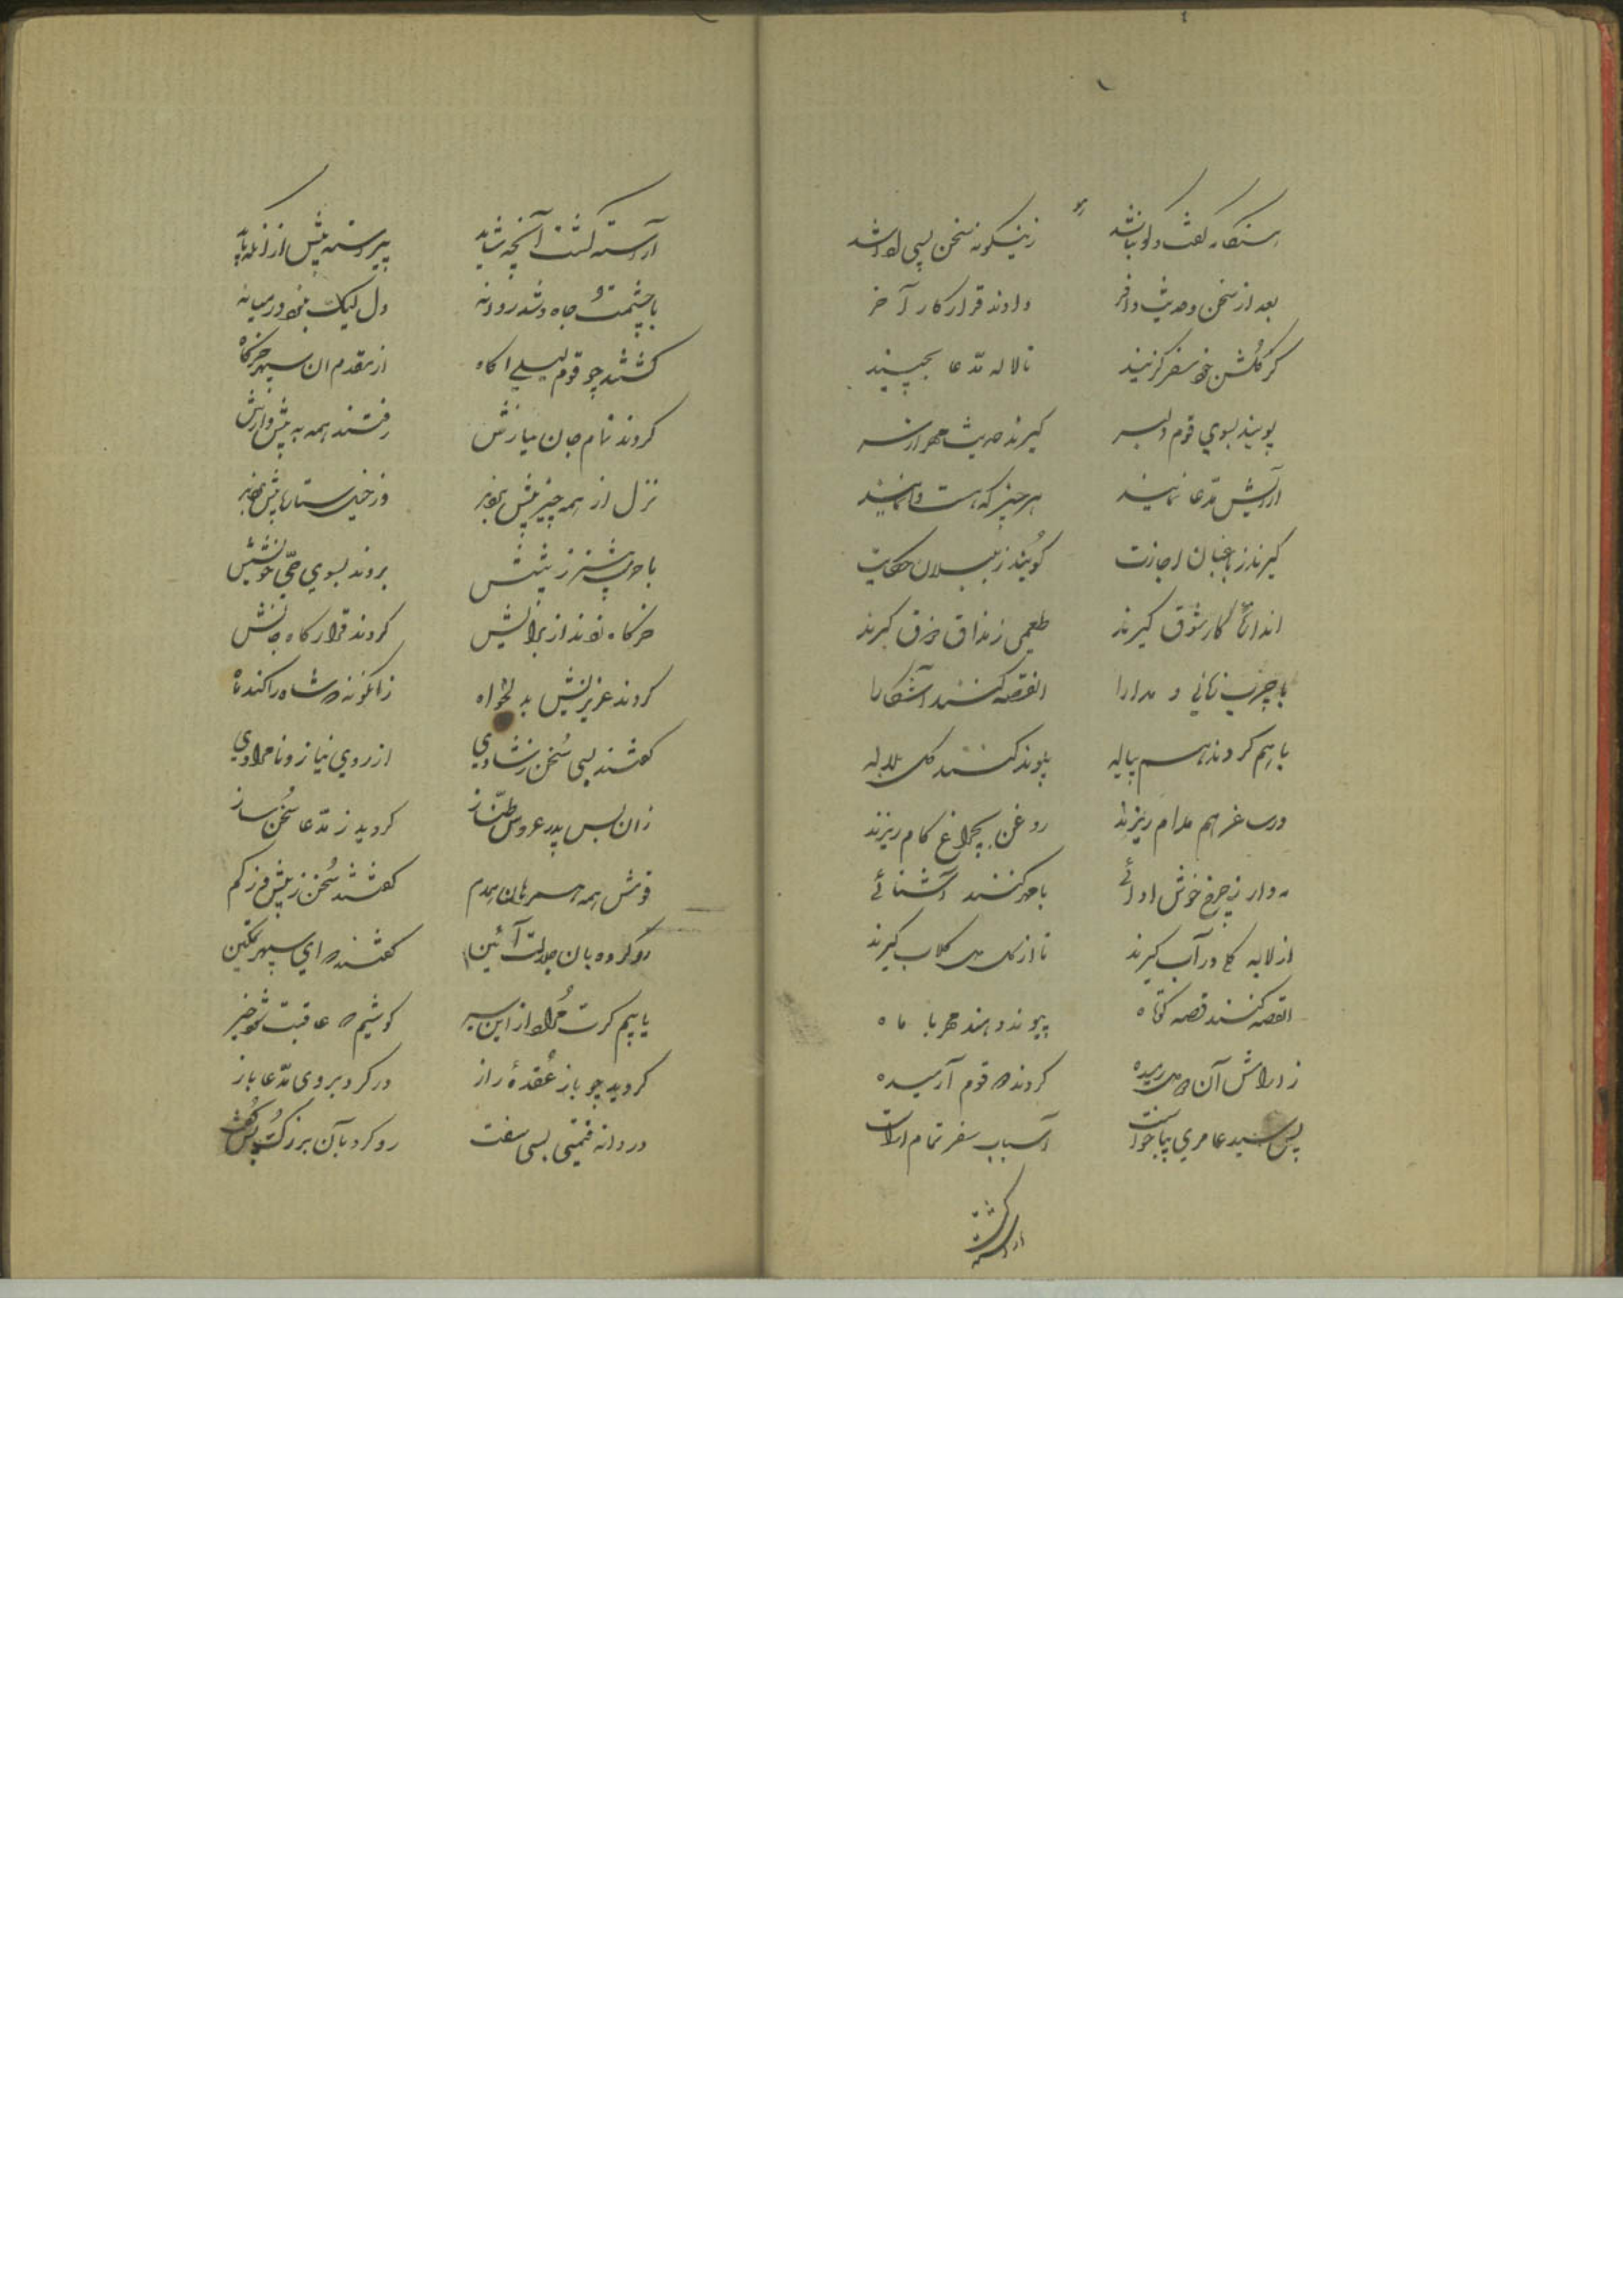 هنگامه گفت و گو بپا شد زینگونه سخن بسی ادا شد
بعد از سخن و حدیث وافر دادند قرار کار آخر
کز گلشن خود سفر گزینند تا لاله مدعا بچینند
پویند بسوی قوم دلبر گیرند حدیث مهر از سر
آرایش مدعا نمایند هر چیز که هست وانمایند
گیرند ز باغبان اجازت گویند ز بلبلان حکایت
اندازه کار شوق گیرند طعمی ز مذاق ذوق گیرند
با چرب زبانی و مدارا القصه کنند آشکارا
باهم گردند هم پیاله پیوند کنند گل بلاله
در ساغر هم مدام ریزند روغن بچراغ کام ریزند
مه وار ز چرخ خوش ادائی با مهر کنند آشنائی
از لابه در آب گیرند تا از گل گلاب گیرند
القصه کنند قصه کوتاه پیوند دهند مهر با ماه
ز رامش آن رمیده گردند قوم آرمیده
پس سید عامری بپا خواست اسباب سفر تمام آراست
آراسته گشت
آراسته گشت آنچه شاید پیراسته پیش از آنکه باید
با حشمت و جاه شد روانه دل لیک بخود در میانه
گشتند چو قوم لیلی آگاه از مقدم آن سپهر خرگاه
کردند تمام جان نیازش رفتند همه به پیش وازش
نزل از همه چیز پیش بردند وز خیل ستاره پیش بردند
با حرمت بیشتر ز پیشش بردند بسوی حی خویشش
خرگاه زدند از برایش کردند قرارگاه جایش
کردند عزیزیش بدلخواه زانگونه که شاه را کند ماه
گفتند بسی سخن ز شادی از روی نیاز و نامرادی
زان پس پدر عروس طناز گردید ز مدعا سخن ساز
قومش همه همسر بان همدم گفتند سخن ز بیش و از کم
رو کرده بآن جلالت آئین گفتند که ای سپهر تمکین
یابیم گرت مراد ازین سیر کوشیم که عاقبت شود خیر
گردید چو باز عقدهٔ راز در کرد بروی مدعا باز
دردانه قیمتی بسی سفت رو کرد بآن بزرگ و پس گفت